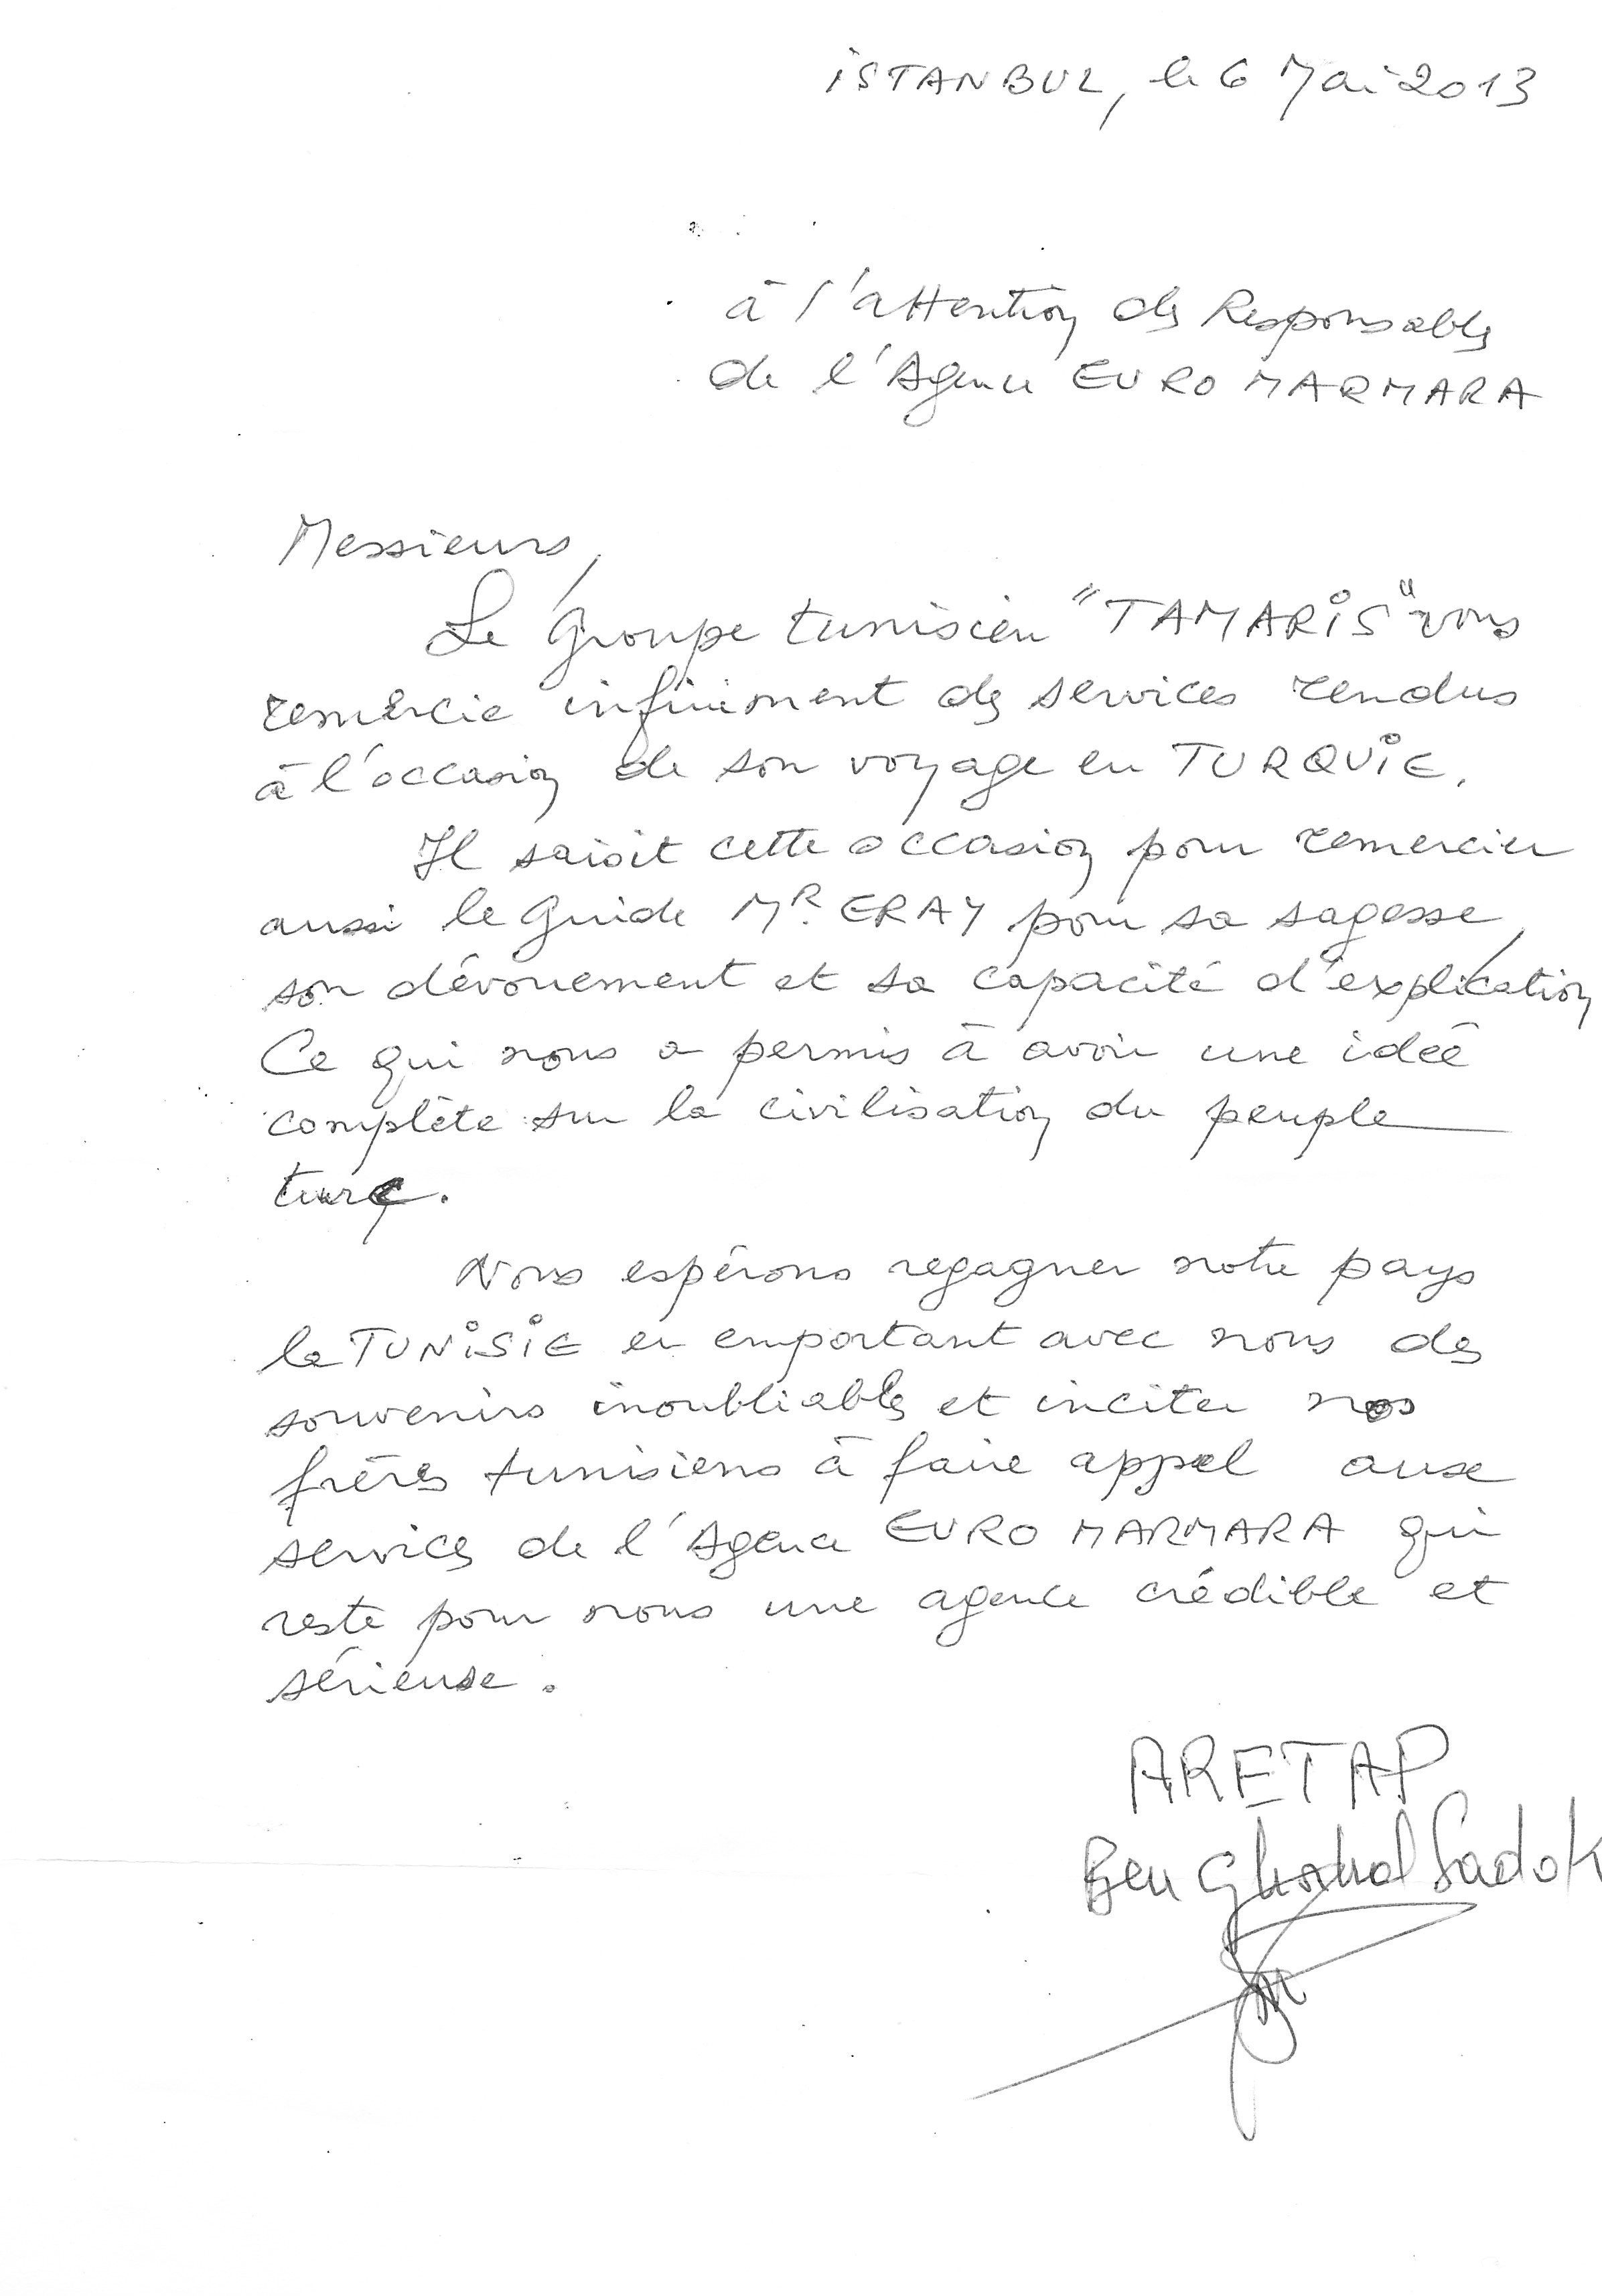 iSTANBUL, le 6 Mai 2013
à l'attention des Responsables
de l'Agence EURO MARMARA
Messieurs,
Le Groupe tunisien "TAMARiS" vous
remercie infiniment des services rendus
à l'occasion de son voyage en TURQUiE.
Il saisit cette occasion pour remercier
aussi le Guide MR. ERAY pour sa sagesse,
son dévouement et sa capacité d'explication
Ce qui nous a permis à avoir une idée
complète sur la civilisation du peuple
turc.
Nous espérons regagner notre pays
la TUNiSiE en emportant avec nous des
souvenirs inoubliables et inciter nos
frères tunisiens à faire appel aux
services de l'Agence EURO MARMARA qui
reste pour nous une agence crédible et
sérieuse.
ARETAP
Ben Sadok